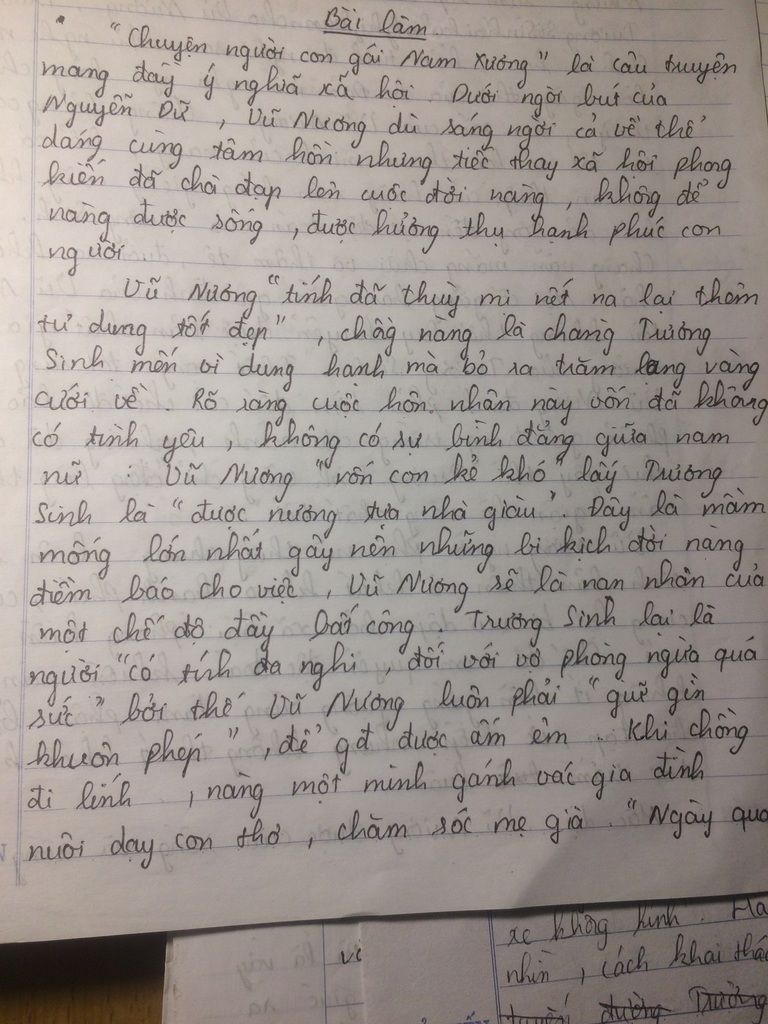 Bài làm
"Chuyện người con gái Nam Xương" là câu truyện
mang đầy ý nghĩa xã hội. Dưới ngòi bút của
Nguyễn Dữ, Vũ Nương dù sáng ngời cả về thể
dáng cùng tâm hồn nhưng tiếc thay xã hội phong
kiến đã chà đạp lên cuộc đời nàng, không để
nàng được sống, được hưởng thụ hạnh phúc con
người
Vũ Nương "tính đã thuỳ mị nết na lại thêm
tư dung tốt đẹp", chồng nàng là chàng Trương
Sinh mến vì dung hạnh mà bỏ ra trăm lạng vàng
cưới về. Rõ ràng cuộc hôn nhân này vốn đã không
có tình yêu, không có sự bình đẳng giữa nam
nữ: Vũ Nương "vốn con kẻ khó" lấy Trương
Sinh là "được nương tựa nhà giàu". Đây là mầm
mống lớn nhất gây nên những bi kịch đời nàng
điềm báo cho việc, Vũ Nương sẽ là nạn nhân của
một chế độ đầy bất công. Trương Sinh lại là
người "có tính đa nghi, đối với vợ phòng ngừa quá
sức" bởi thế Vũ Nương luôn phải "giữ gìn
khuôn phép", để gđ được ấm êm. Khi chồng
đi lính, nàng một mình gánh vác gia đình
nuôi dạy con thơ, chăm sóc mẹ già. "Ngày qua
xe không kính. Ha
nhìn, cách khai thác
đường Trường